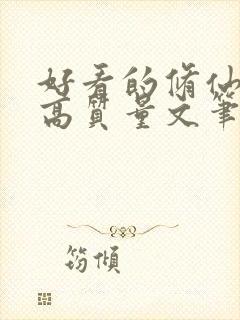 好看的脩仙
高質量文筆
筠傾